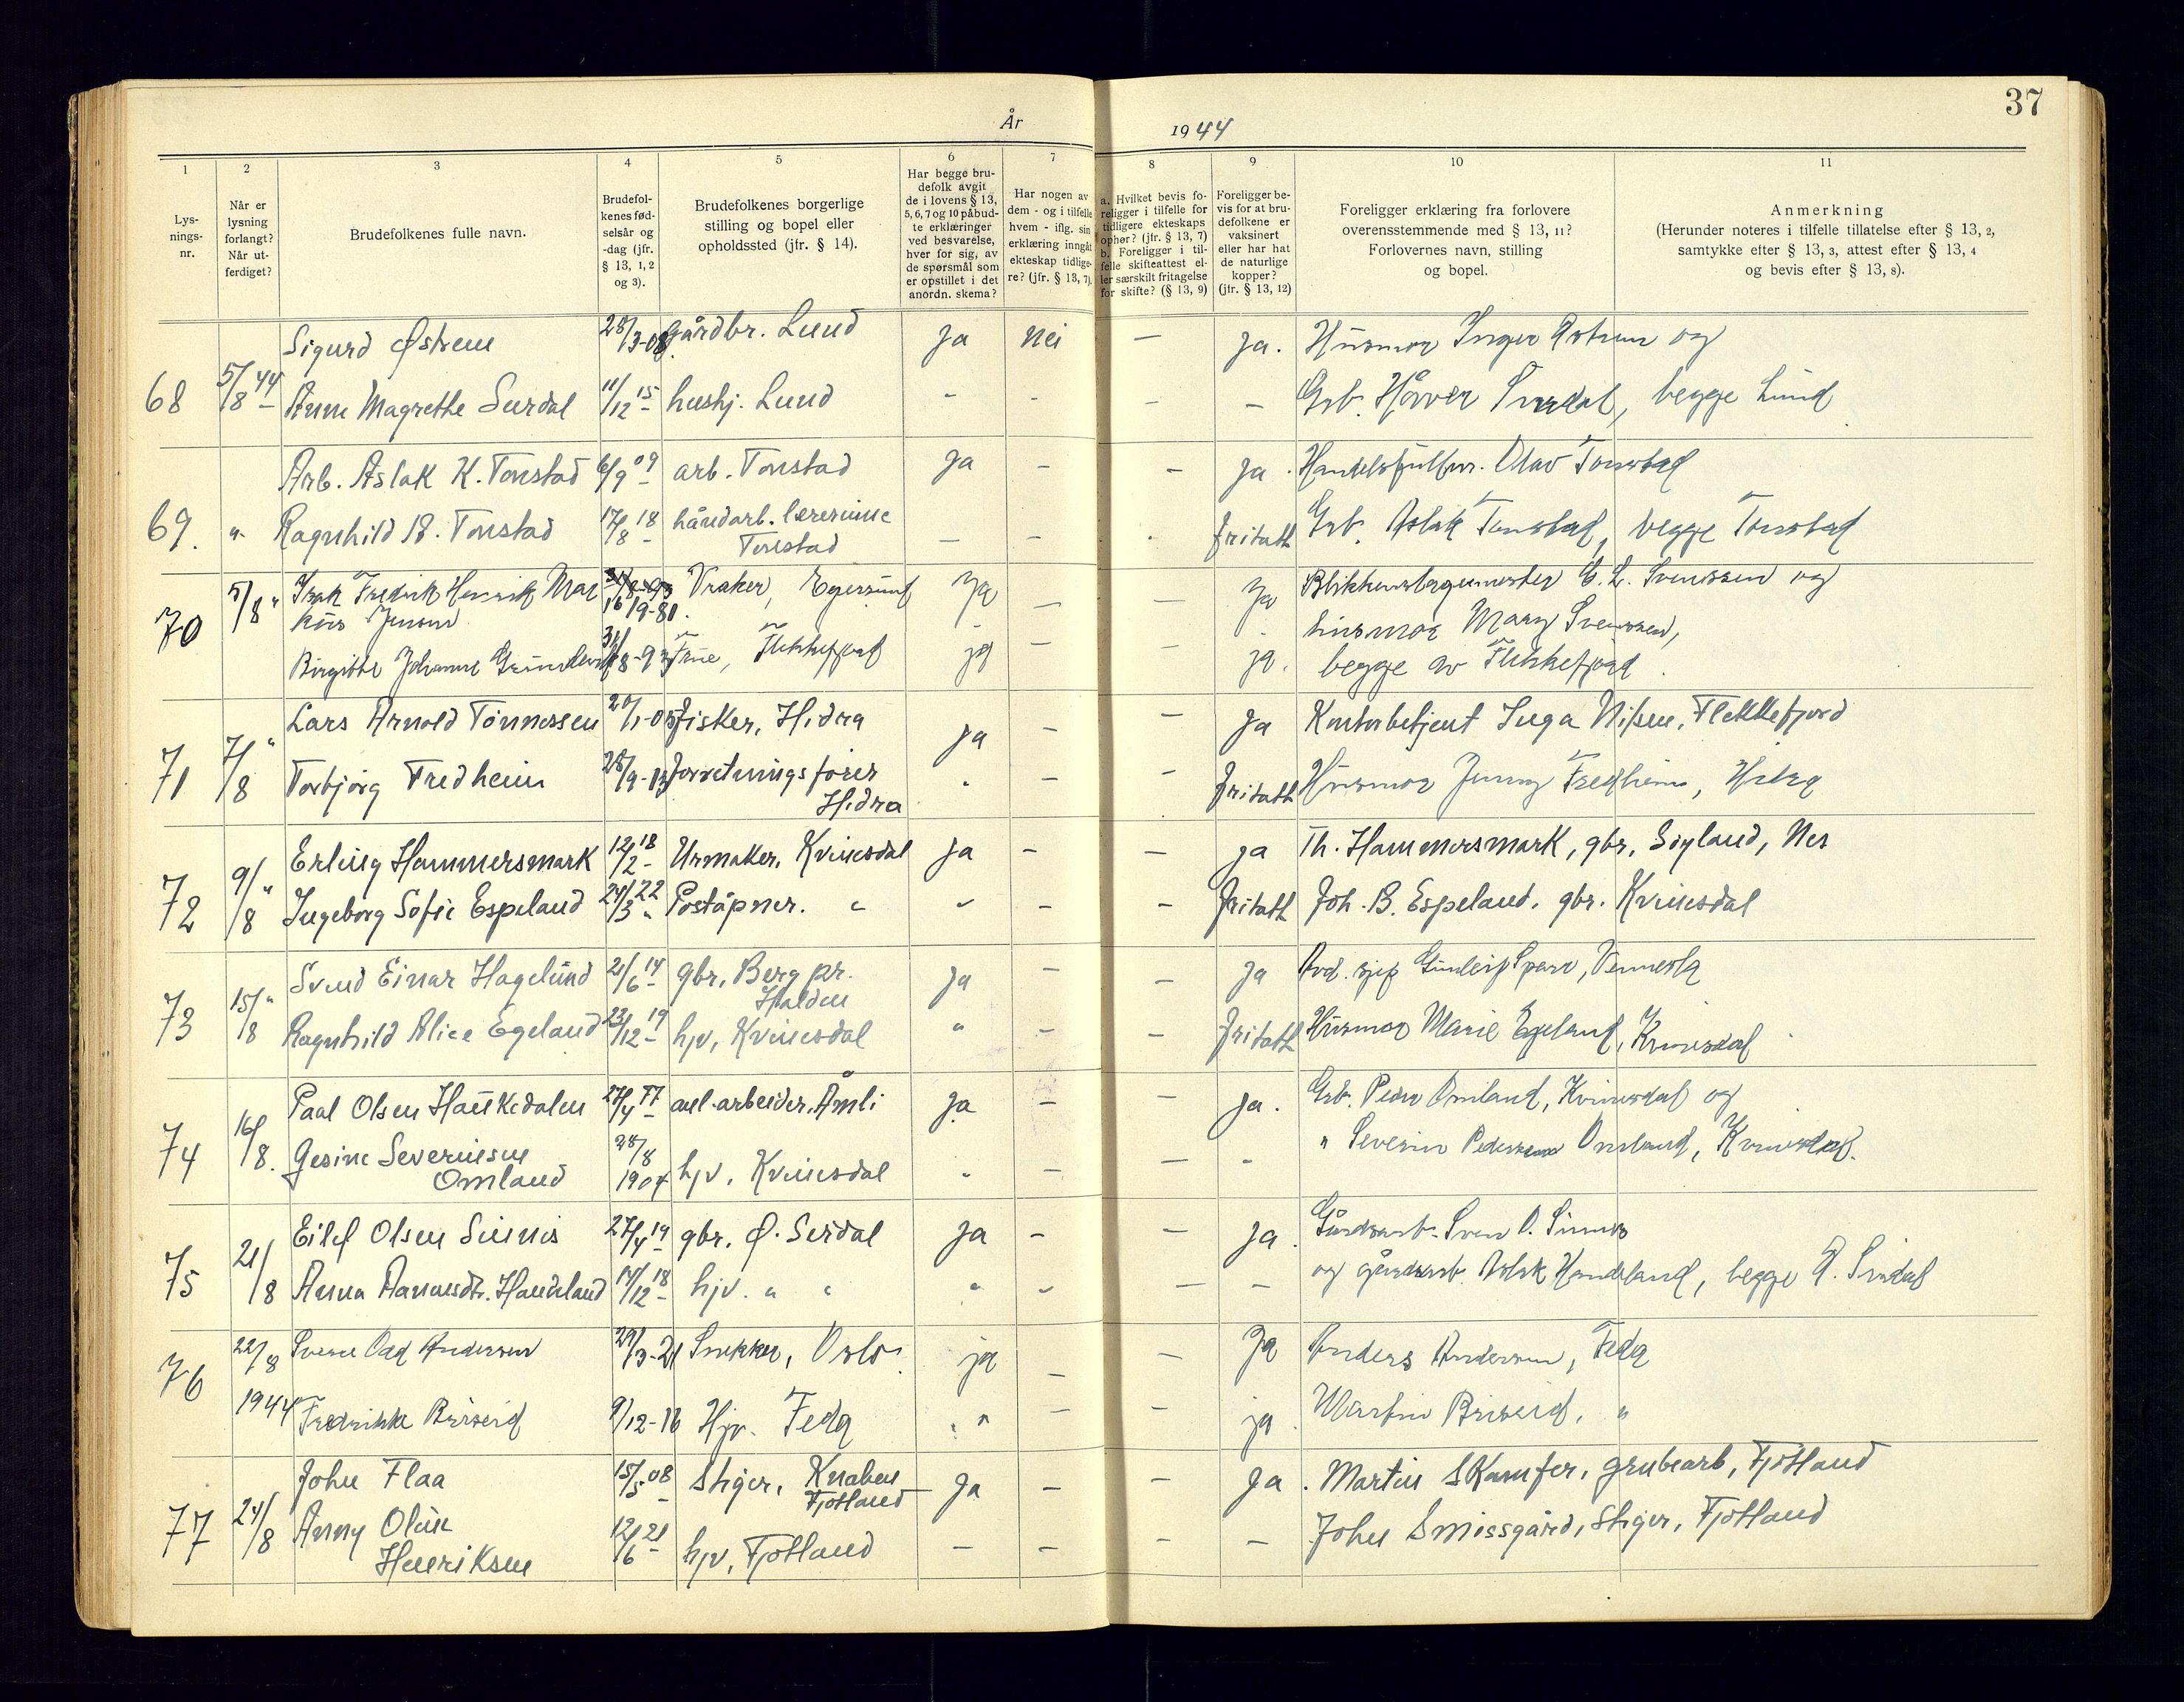 37
År 1944
1 2 3 4 5 6 7 8 9 10 11
Lys-
nings-
nr.
Når er
lysning
forlangt?
Når ut-
ferdiget?
Brudefolkenes fulle navn.
Brudefol-
kenes fød-
selsår og
-dag (jfr.
§ 13, 1, 2
og 3).
Brudefolkenes borgerlige
stilling og bopel eller
opholdssted (jfr. § 14).
Har begge bru-
defolk avgit
de i lovens § 13,
5, 6, 7 og 10 påbud-
te erklæringer
ved besvarelse,
hver for sig, av
de spørsmål som
er opstillet i det
anordn. skema?
Har nogen av
dem - og i tilfelle
hvem - iflg. sin
erklæring inngått
ekteskap tidlige-
re? (jfr. § 13, 7).
a. Hvilket bevis fo-
religger i tilfelle for
tidligere ekteskaps
ophør? (jfr. § 13, 7)
b. Foreligger i til-
felle skifteattest el-
ler særskilt fritagelse
for skifte? (§ 13, 9)
Foreligger be-
vis for at bru-
defolkene er
vaksinert
eller har hat
de naturlige
kopper?
(jfr. § 13, 12)
Foreligger erklæring fra forlovere
overensstemmende med § 13, 11?
Forlovernes navn, stilling
og bopel.
Anmerkning
(Herunder noteres i tilfelle tillatelse efter § 13, 2,
samtykke efter § 13, 3, attest efter § 13, 4
og bevis efter § 13, 8).
Sigurd Østrem 28/3-08 gårdbr. Lund ja nei — ja. Husmor Inger Østrem og
68 5/8 44 Anne Magrethe Surdal 11/12 15 hushj. Lund - - - — Grb. Håver Surdal, begge Lund
Arb. Aslak K. Tonstad 6/9 09 arb. Tonstad ja - - ja. Handelsfullm. Olav Tonstad
69. " Ragnhild B. Tonstad 17/8 18 håndarb. lærerinne — - . fritatt Grb. Aslak Tonstad, begge Tonstad
Tonstad
70 5/8 " Isak Fredrik Henrik Mar 16/9-80 Vraker, Egersund ja — — ja Blikkenslagermester E. L. Svenssen og
kus Jensen husmor Mary Svenssen,
Birgitte Johanne 31/8-93 Frue, Flekkefjord ja - - ja. begge av Flekkefjord
Lars Arnold Tønnessen 20/1-05 fisker, Hidra ja - - ja Kontorbetjent Inga Nilsen, Flekkefjord
71 7/8 " Torbjørg Fredheim 28/9-13 forretningsfører " - - fritatt Husmor Jenny Fredheim, Hidra
Hidra
Erling Hammersmark 12/2 18 Urmaker, Kvinesdal ja - - ja Th. Hammersmark, gbr, Sigland, Nes
72 9/8 " Ingeborg Sofie Espeland 24/3 22 Poståpner. " " - - fritatt Joh. B. Espeland, gbr. Kvinesdal
Svend Einar Hagelund 21/6 14 gbr, Berg pr. ja - - ja Avd. sjef Gunleif Sparr, Vennesla
Halden
73 15/8 " Ragnhild Alice Egeland 23/12 19 hjv, Kvinesdal " - - fritatt Husmor Marie Egeland, Kvinesdal
Paal Olsen Haukedalen 27/4 77 anl.arbeider, Åmli ja - - ja. Grb. Peder Omland, Kvinesdal og
74 16/8. Gesine Severinsen 28/8 " Severin Pedersen Omland, Kvinesdal.
Omland 1904 hjv, Kvinesdal " - - -
Eilef Olsen Sinnes 27/4 19 gbr, Ø. Sirdal ja - - ja. Gårdsarb. Sven O. Sinnes
75 21/8 Anna Aanensdtr. Haueland 14/12 18 hjv. " " " - - - og gårdsarb. Aslak Handeland, begge Ø. Sirdal
76 22/8 Sverre Odd Andersen 29/3-21 Snekker, Oslo ja - - ja Anders Andersen, Feda
1944 Fredrikke Briseid 9/12-16 Hjv. Feda " - - ja Martin Briseid, "
John Flaa 15/5 08 Stiger, Knaben ja - - ja. Martin Skamfer, grubearb, Fjotland
Fjotland
77 24/8 Anny Oline 12/6 21 hjv, Fjotland - - - - John Smissgård, Stiger, Fjotland
Henriksen